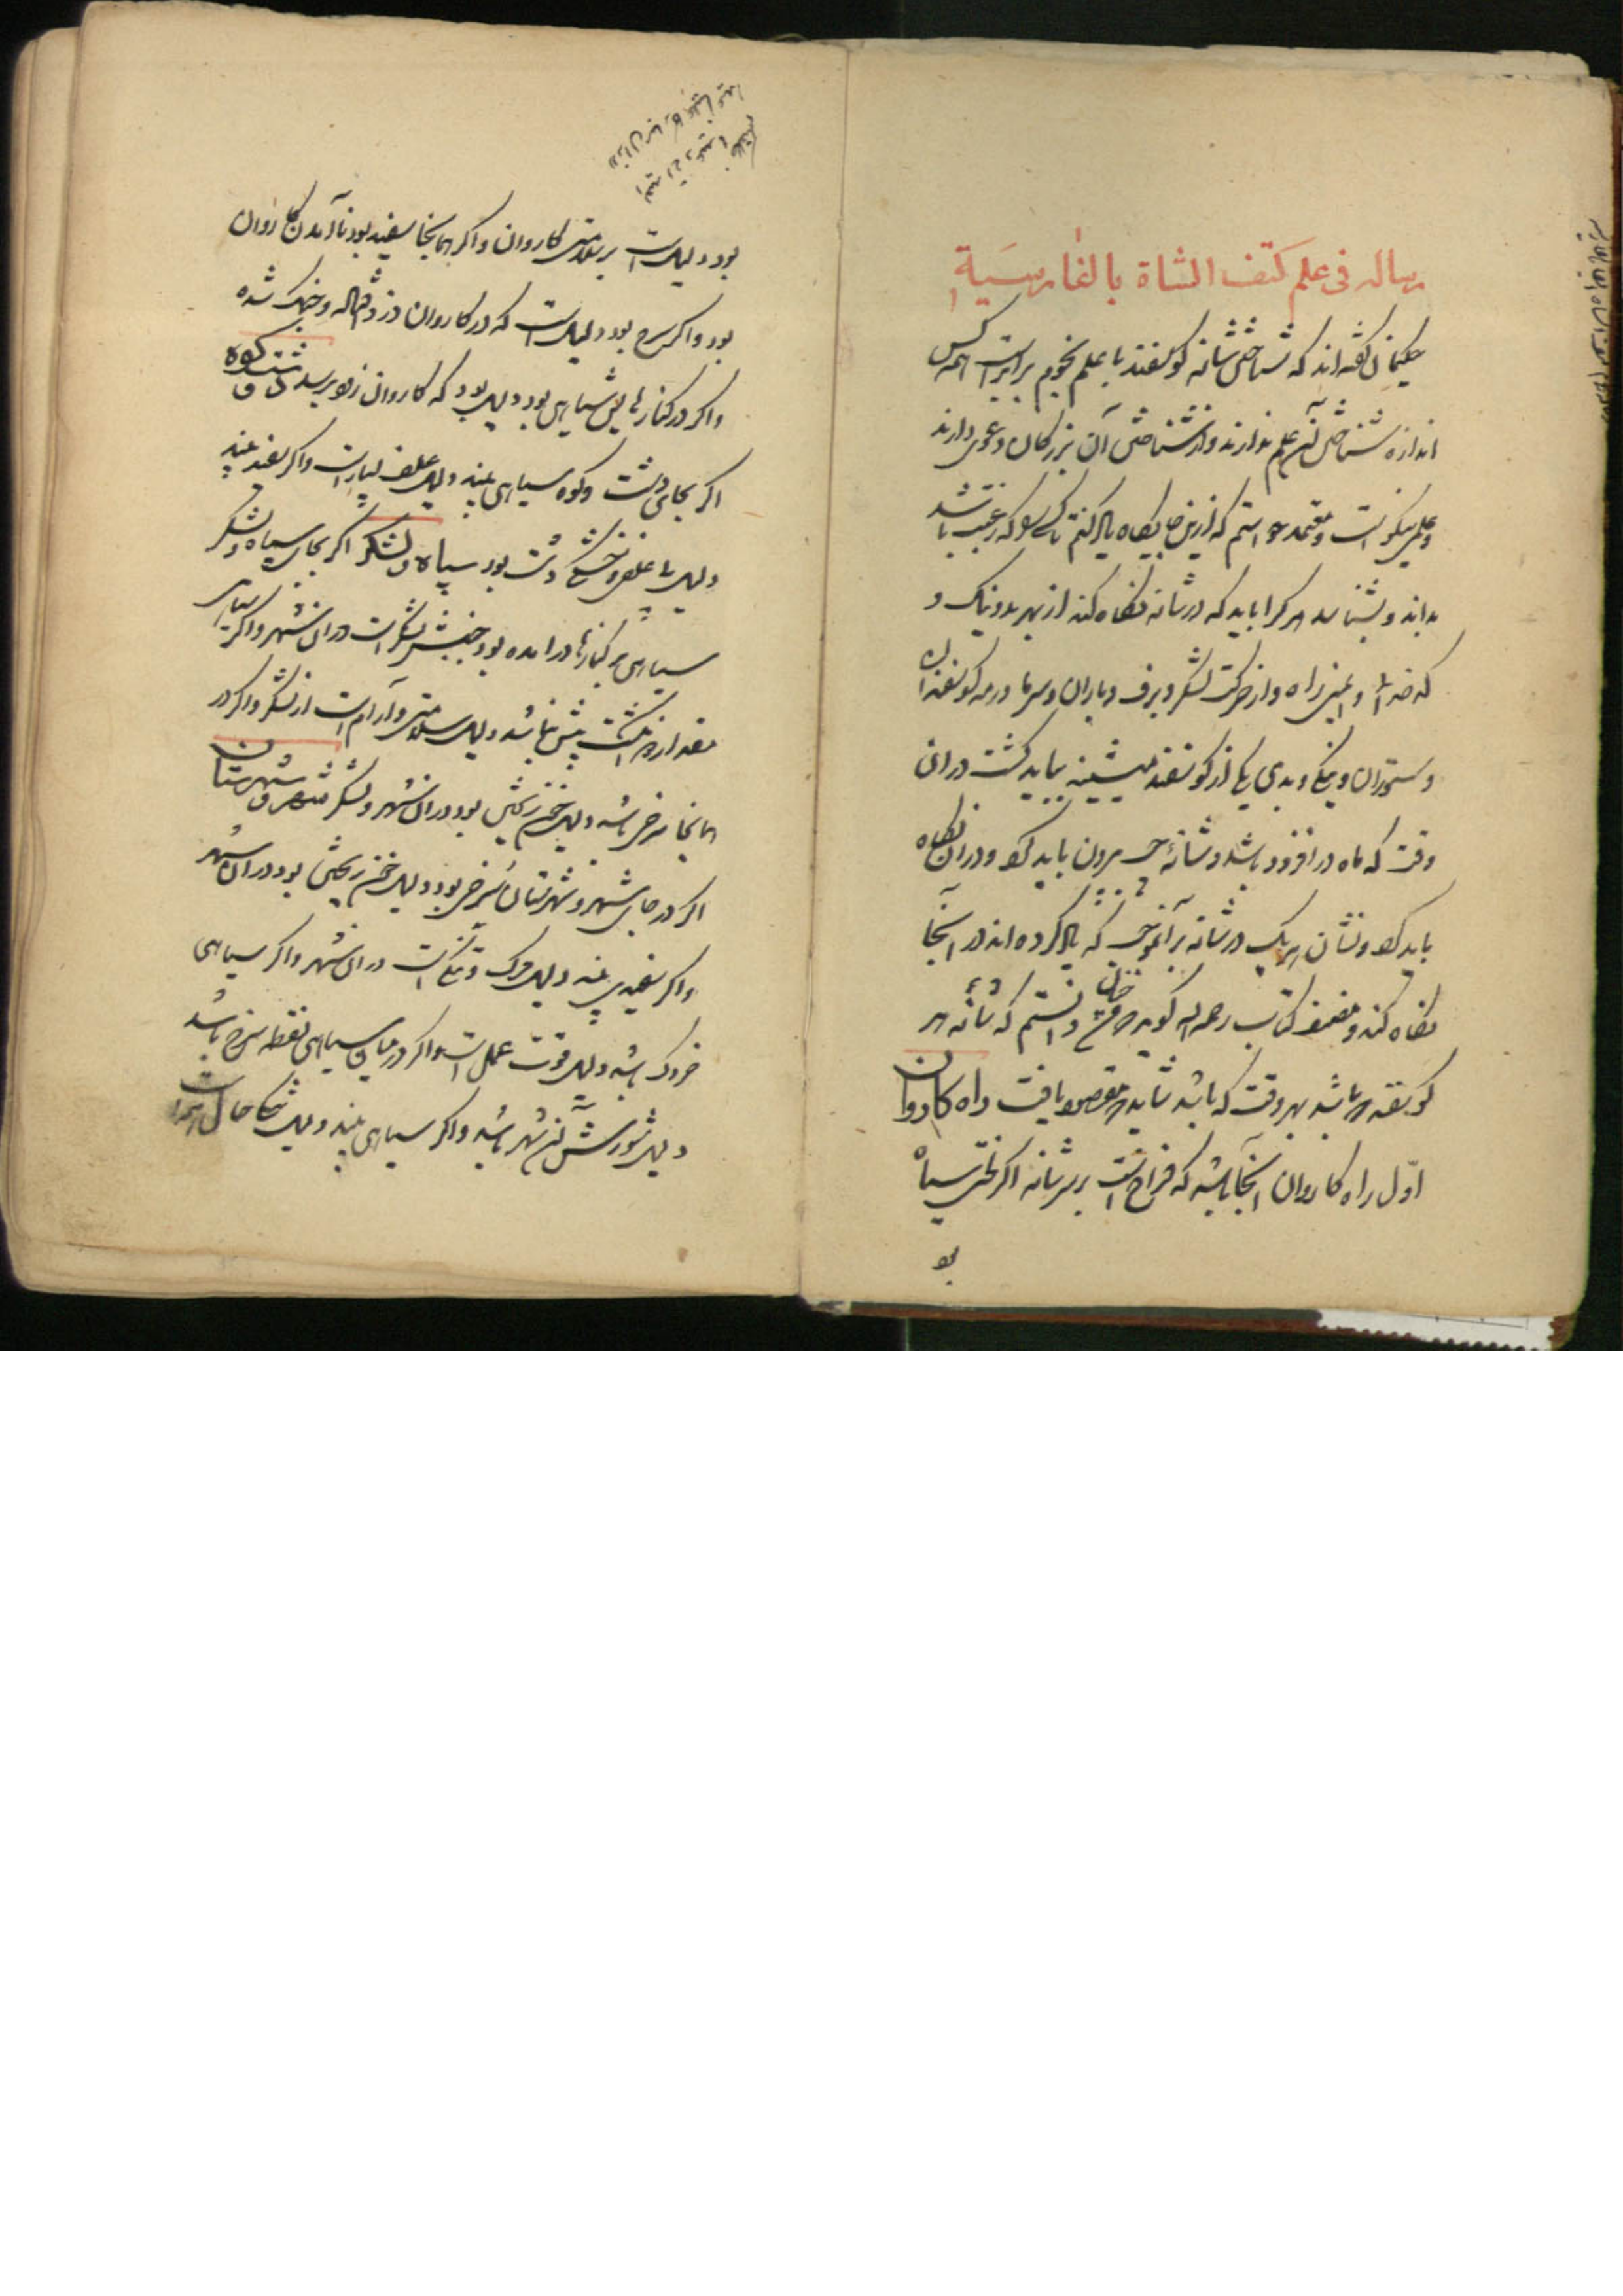 رساله فی علم کتف الشاة بالفارسیة
حکیمان گفته‌اند که شناختن شانه کوسفند با علم نجوم برابرست همه کس
اندازه شناختن آن علم ندارند و از شناختن آن بزرکان دعوی دارند
و علمی نیکوست و معتمد خواستم که ازین جایکاه یاد کنم تا کسی را که رغبت باشد
بداند و بشناسد هر کرا باید که در شانه نکاه کند از بهر بد و نیک و
و ایمنی راه و از حرکت لشکر و برف و باران و سرما و رمه کوسفندان
و ستوران و نیکی و بدی یکی از کوسفند میشینه بباید کشت در ان
وقت که ماه در افزود باشد و شانهٔ بیرون باید کرد و در ان نکاه
باید کرد و نشان هر یک در شانه بر آنموجب که یاد کرده اند در اینجا
نکاه کند و مصنف کتاب رحمه الله کوید دانستم که شانه هر
کوسفند باشد بهر وقت که باشد شاید مقصود یافت راه کاروان
اوّل راه کاروان اینجا باشد که فراخ است بر سر شانه اکر لختی سیاه
بود
بود دلیل است بر سلامتی کاروان و اکر همانجا سفید بود نا آمدن کاروان
بود و اکر سرخ بود دلیل است که در کاروان دزد و جنک شده
و اکر در کنارها سیاهی بود دلیل بود که کاروان زود برسد دشت و کوه
اکر بجای دشت و کوه سیاهی بیند دلیل علف بسیار است و اکر سفید بیند
دلیل بی علفی و خشکی دشت بود سپاه و لشکر اکر بجای سپاه و لشکر
سیاهی بر کنارها درآمده بود جنبش لشکر است در ان شهر و اکر سیاهی
مقدار دو انکشت بیش نباشد دلیل سلامتی و آرام است از لشکر و اکر در
همانجا سرخی باشد دلیل خون ریختن بود در ان شهر و لشکر شهر و شهرستان
اکر در جای شهر و شهرستان سرخی بود دلیل خون ریختن بود در ان شهر
و اکر سفیدی بیند دلیل مرک و تنکی است در ان شهر و اکر سیاهی
باشد دلیل قوت عمل است و اکر در میان سیاهی نقطه سرخ باشد
دلیل شورش آن شهر باشد و اکر سیاهی بیند دلیل حال است